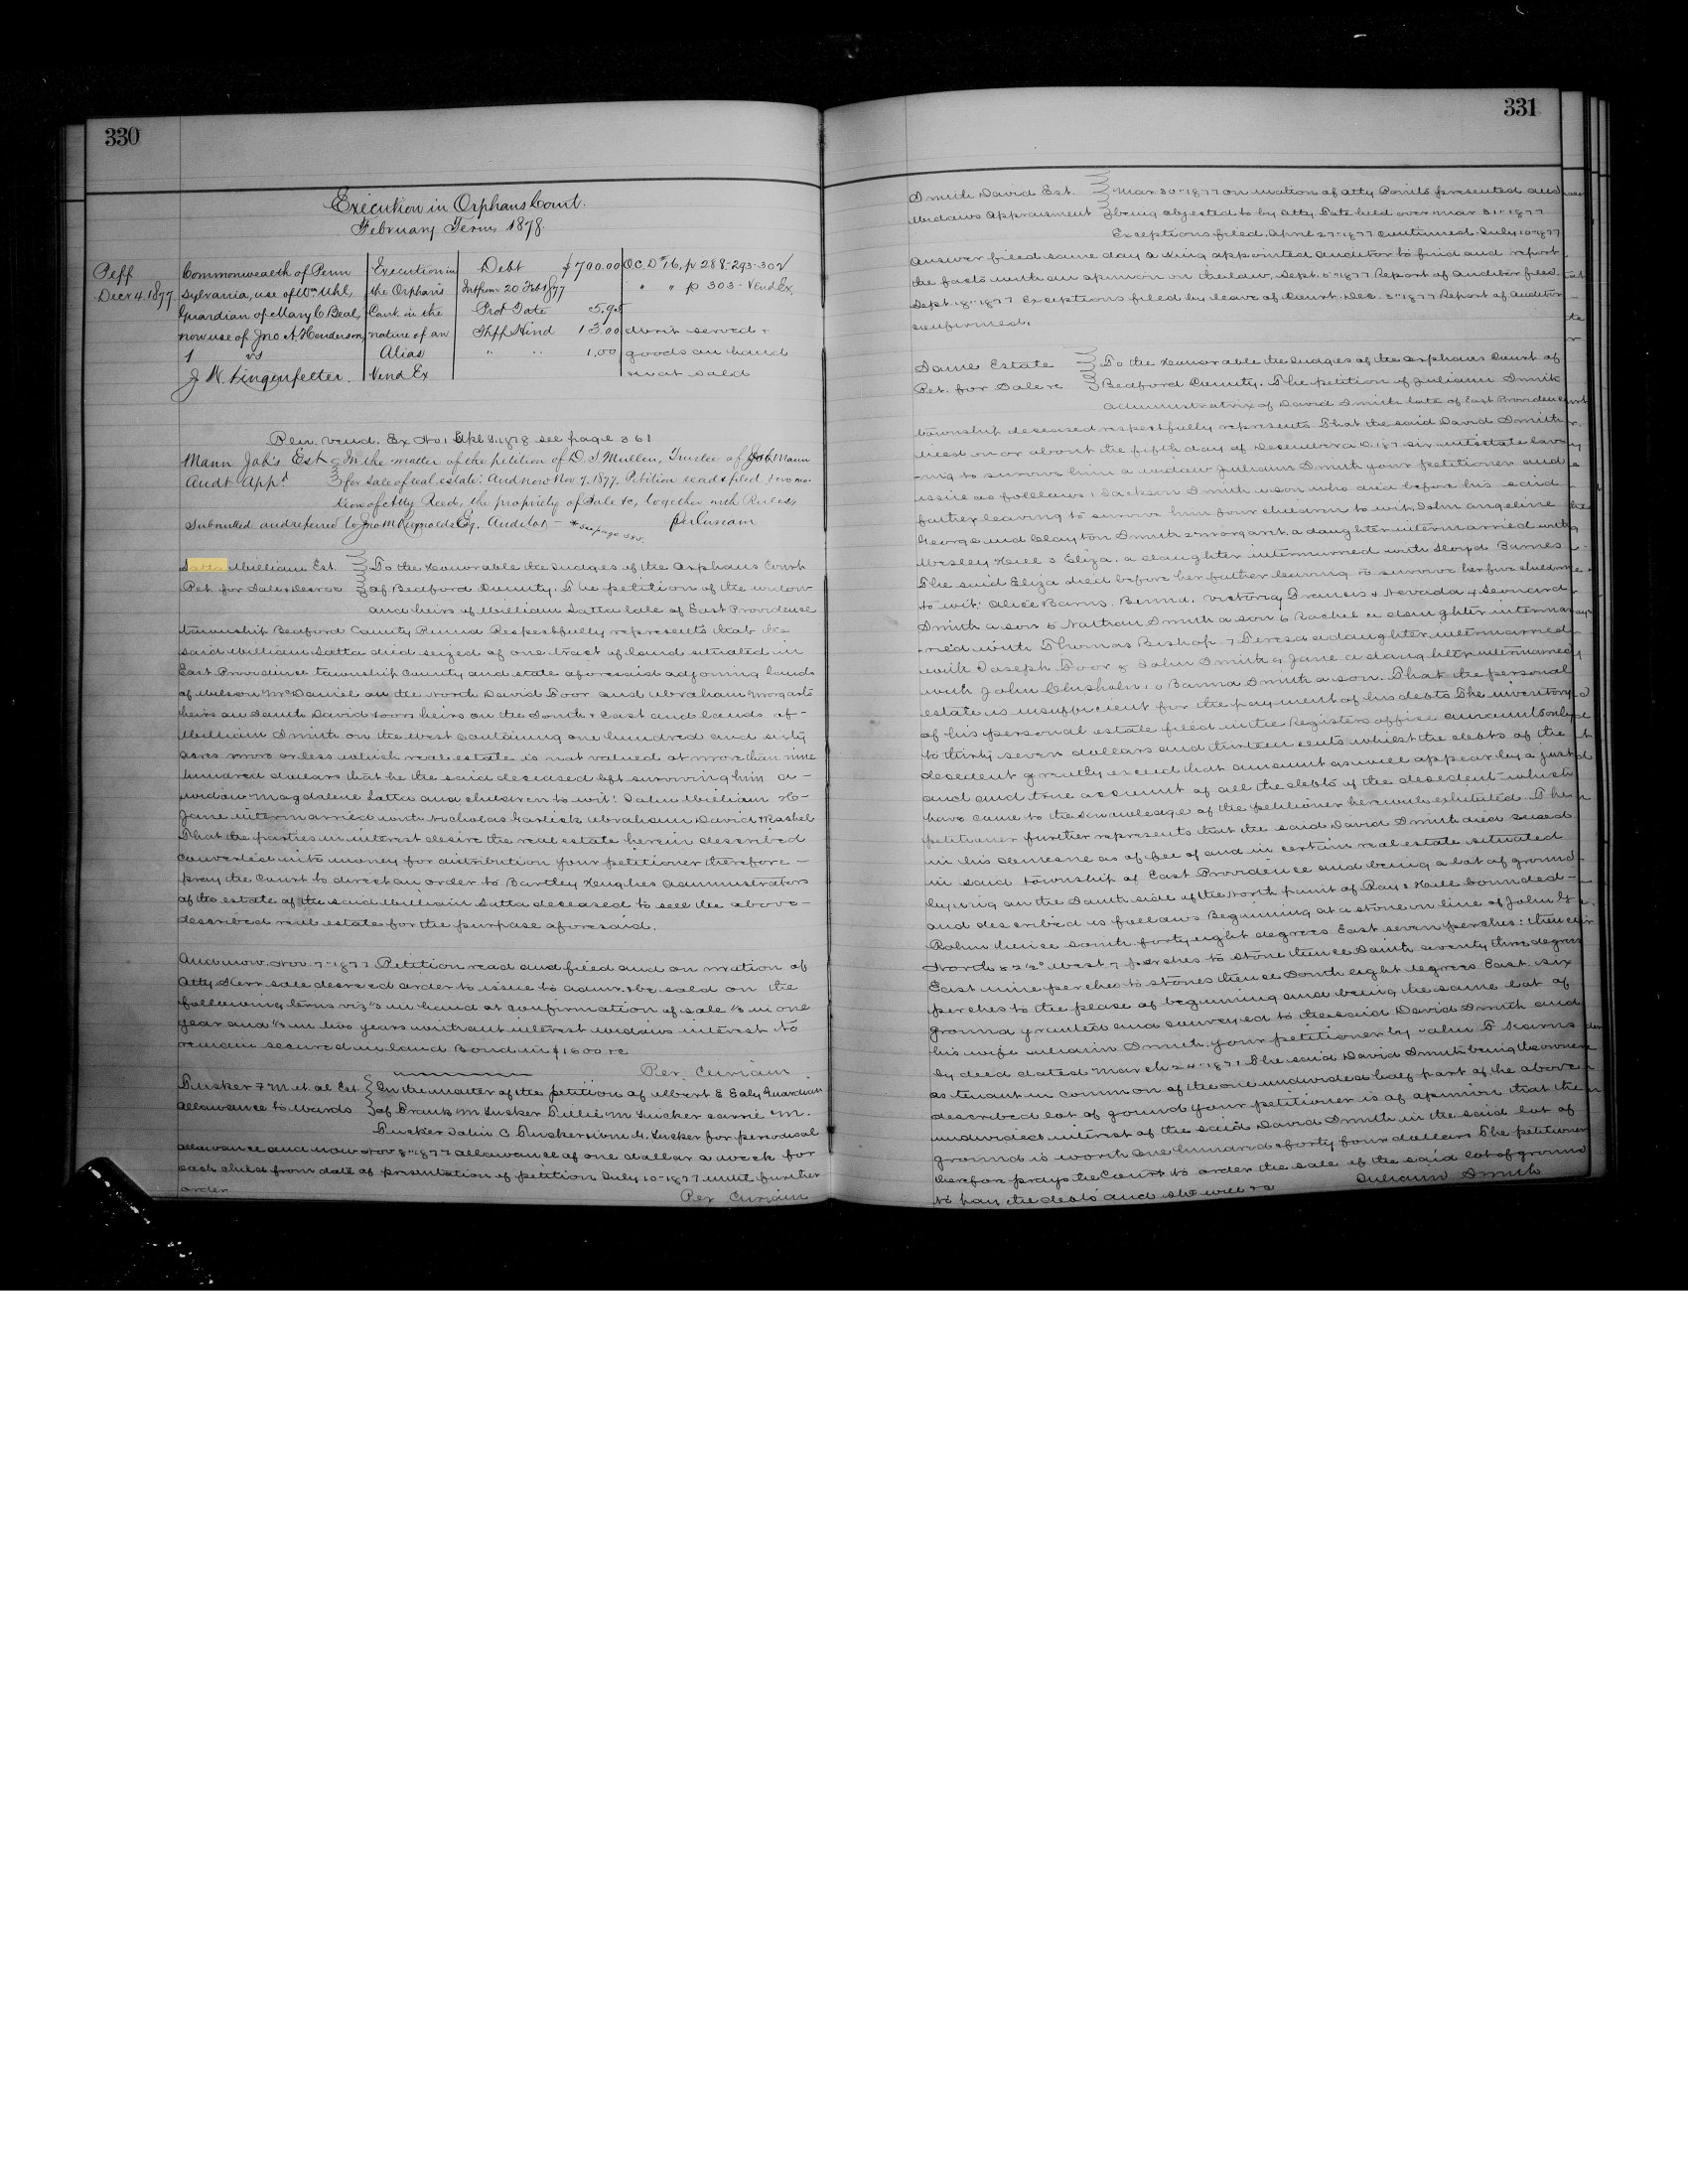 330
Execution in Orphans Court.
February Term 1878.
Peff
Decr 4. 1877
Commonwealth of Penn
sylvania, use of Wm Uhl,
Guardian of Mary C Beal,
now use of Jno. A. Henderson,
1 vs
J W. Lingenfelter.
Execution in
the Orphans
Court. in the
nature of an
Alias
Vend Ex
Debt $700.00
Int from 20 Feb 1877
Prot Tate 5.95
Shff Hind 13.00
" " 1.00
O.C. D. 16. p 288-293-302
" " p 303 - Vend Ex.
served &
goods on hand
not sold
vend. Ex No 1 Apl 8. 1878 see page 361
Mann Job's Est In the matter of the petition of D. S Mullen, Trustee of Job Mann
Audt App.d for sale of real estate: And now Nov 7. 1877. Petition read & filed & on mo
tion of Atty Reed, the propriety of Sale &c, together with Rules,
Submitted and referred to Jno M Reynolds Esq. Auditor - * See page
per Curiam
Latta William Est. To the Honorable the Judges of the Orphans Court
Pet. for Sale & Decree of Bedford County. The petition of the widow
and heirs of William Latta late of East Providence
township Bedford County Penna Respectfully represents that the
said William Latta died seized of one tract of land situated in
East Providence township County and state aforesaid adjoining lands
of Wilson McDaniel on the North David Foor and Abraham Morgarts
heirs on South David Foors heirs on the South & East and lands of -
William Smith on the West containing one hundred and sixty
acres more or less which real estate is not valued at more than nine
hundred dollars that he the said deceased left surviving him a -
widow Magdalene Latta and children to wit: John William H-
Jane intermarried with Nicholas Karlick Abraham David & Rachel
That the parties in interest desire the real estate herein described
converted into money for distribution your petitioner therefore -
pray the Court to direct an order to Bartley Hughes administrators
of the estate of the said William Latta deceased to sell the above -
described real estate for the purpose aforesaid.
And now. Nov. 7" 1877 Petition read and filed and on motion of
Atty Kerr sale decreed order to issue to admr. & be sold on the
following terms viz ⅓ in hand at confirmation of sale ⅓ in one
year and ⅓ in two years without interest widows interest to
remain secured in land Bond in $1600 &c
Per. Curiam
Tusker F M et. al Est. In the matter of the petition of Albert E Ealy Guardian
allowance to Wards of Frank M Tusker Tillie M Tusker Carrie M.
Tusker John C Tusker & G. Tusker for periodical
allowance and now Nov 8" 1877 allowance of one dollar a week for
each child from date of presentation of petition July 10" 1877 until further
order
Per Curiam
331
Smith David Est. Mar. 30" 1877 on motion of atty Points presented and
Widows Appraisment being objected to by atty Tate held over Mar 31" 1877
Exceptions filed. April 27" 1877 Continued. July 10" 1877
Answer filed same day A King appointed auditor to find and report
the facts with an opinion on the law. Sept. 5" 1877 Report of auditor filed.
Sept. 18" 1877 Exceptions filed by leave of Court. Dec. 3" 1877 Report of auditor
confirmed.
Same Estate To the Honorable the Judges of the Orphans Court of
Pet. for Sale &c Bedford County. The petition of Juliann Smith
Administratrix of David Smith late of East Providence
township deceased respectfully represents. That the said David Smith
died on or about the fifth day of December A.D. 187 six intestate leav
-ing to survive him a widow Juliann Smith your petitioner and
issue as follows: 1 Jackson Smith a son who died before his said
father leaving to survive him four children to wit, John Angeline
George and Clayton Smith 2 Margaret a daughter intermarried with
Wesley Hill 3 Eliza. a daughter intermarried with Lloyd Barnes
The said Eliza died before her father leaving to survive her five children
to wit: Alice Barns. Victoria Francis & Nevada 4 Leonard
Smith a son 5 Nathan Smith a son 6 Rachel a daughter intermar
-ried with Thomas Bishop 7 Teresa a daughter intermarried
with Joseph Foor 8 John Smith 9 Jane a daughter intermarried
with John Chisholm 10 Smith a son. That the personal
estate is insufficient for the payment of his debts The inventory
of his personal estate filed in the Registers office amounts only
to thirty seven dollars and thirteen cents whilst the debts of the
decedent greatly exceed that amount as will appear by a just
and and true account of all the debts of the decedent which
have came to the knowledge of the petitioner herewith exhibited. The
petitioner further represents that the said David Smith died seized
in his demesne as of fee of and in certain real estate situated
in said township of East Providence and being a lot of ground -
lying on the South side of the North point of Rays Hill bounded -
and described as follows Beginning at a stone on line of John G
Rohm thence south forty eight degrees East seven perches: thence
North 52½° West 7 perches to stone thence South seventy three degrees
East nine perches to stones thence South eight degrees East six
perches to the place of beginning and being the same lot of
ground granted and conveyed to the said David Smith and
his wife Juliann Smith your petitioner by John T Kearns
by deed dated March 24" 1871 The said David Smith being the owner
as tenant in common of the one undivided half part of the above
described lot of ground your petitioner is of opinion that the
undivided interest of the said David Smith in the said lot of
ground is worth one hundred & forty four dollars The petitioner
therefore prays the Court to order the sale of the said lot of ground
to pay the debts and she will &c Juliann Smith